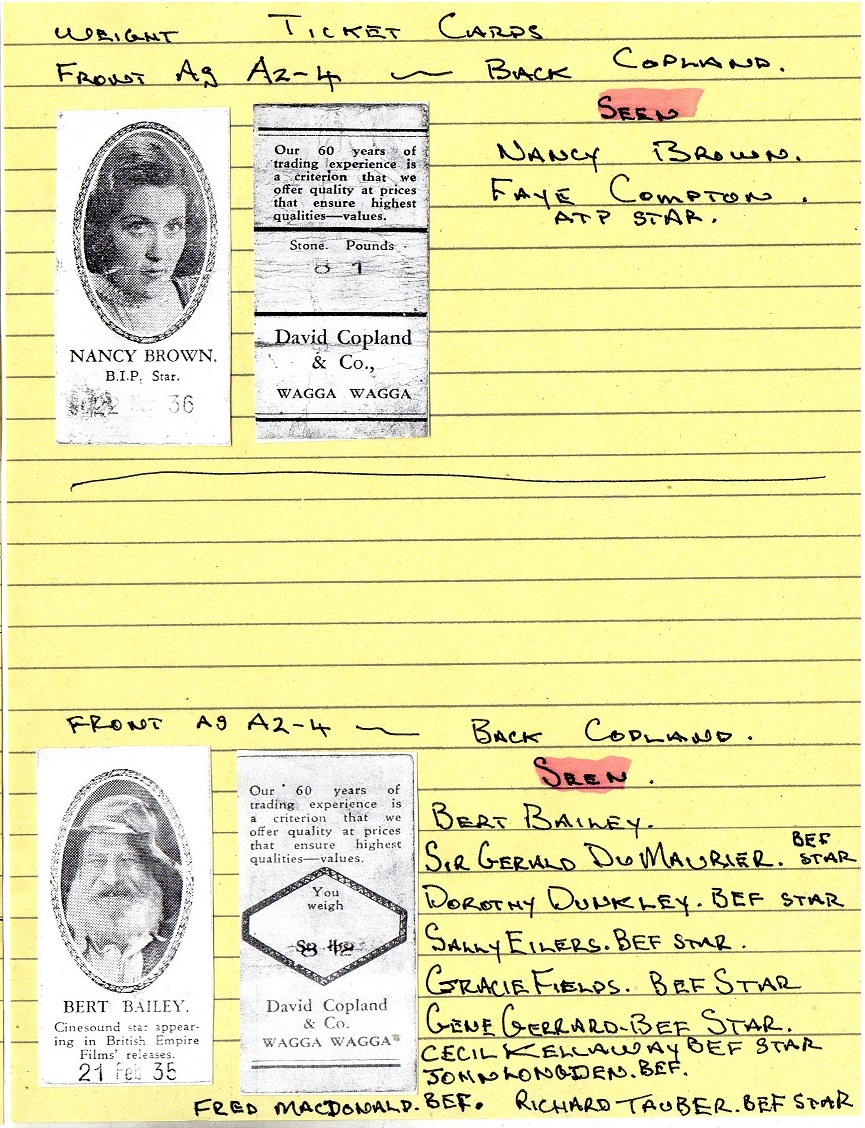 WEIGHT TICKET CARDS
FRONT A9 A2-4 ~ BACK COPLAND.
SEEN
NANCY BROWN.
FAYE COMPTON.
ATP STAR.
NANCY BROWN.
B.I.P. Star.
22 36
Our 60 years of
trading experience is
a criterion that we
offer quality at prices
that ensure highest
qualities—values.
Stone. Pounds
8 7
David Copland
& Co.,
WAGGA WAGGA
FRONT A9 A2-4 ~ BACK COPLAND.
SEEN.
BERT BAILEY.
Cinesound star appear-
ing in British Empire
Films' releases.
21 Feb 35
Our 60 years of
trading experience is
a criterion that we
offer quality at prices
that ensure highest
qualities—values.
You
weigh
David Copland
& Co.
WAGGA WAGGA
BERT BAILEY.
SIR GERALD DU MAURIER. BEF STAR
DOROTHY DUNKLEY. BEF STAR
SALLY EILERS. BEF STAR.
GRACIE FIELDS. BEF STAR
GENE GERRARD-BEF STAR.
CECIL KELLAWAY BEF STAR
JOHN LONGDEN. BEF.
FRED MACDONALD. BEF. RICHARD TAUBER. BEF STAR